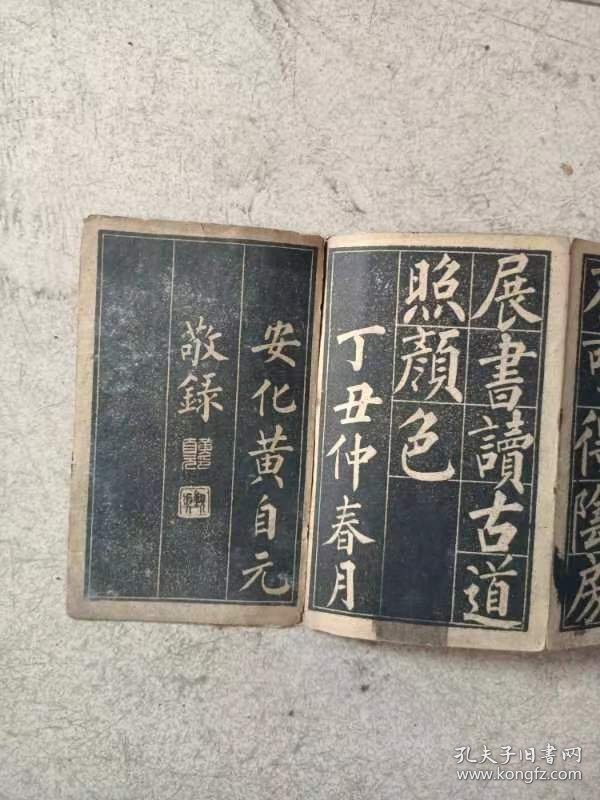 展書讀古道
照顏色
丁丑仲春月
安化黄自元
敬録
孔夫子旧书网
www.kongfz.com